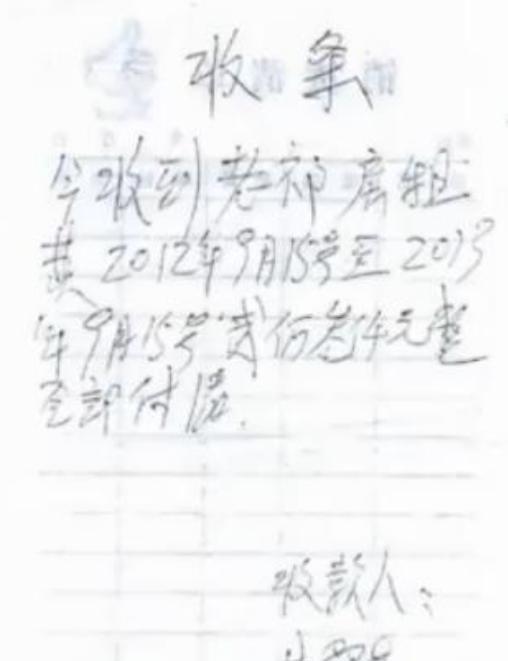 收条
今收到老祁房租
费2012年9月15号至2013
年9月15号 贰仟叁仟元整
全部付清.
收款人: